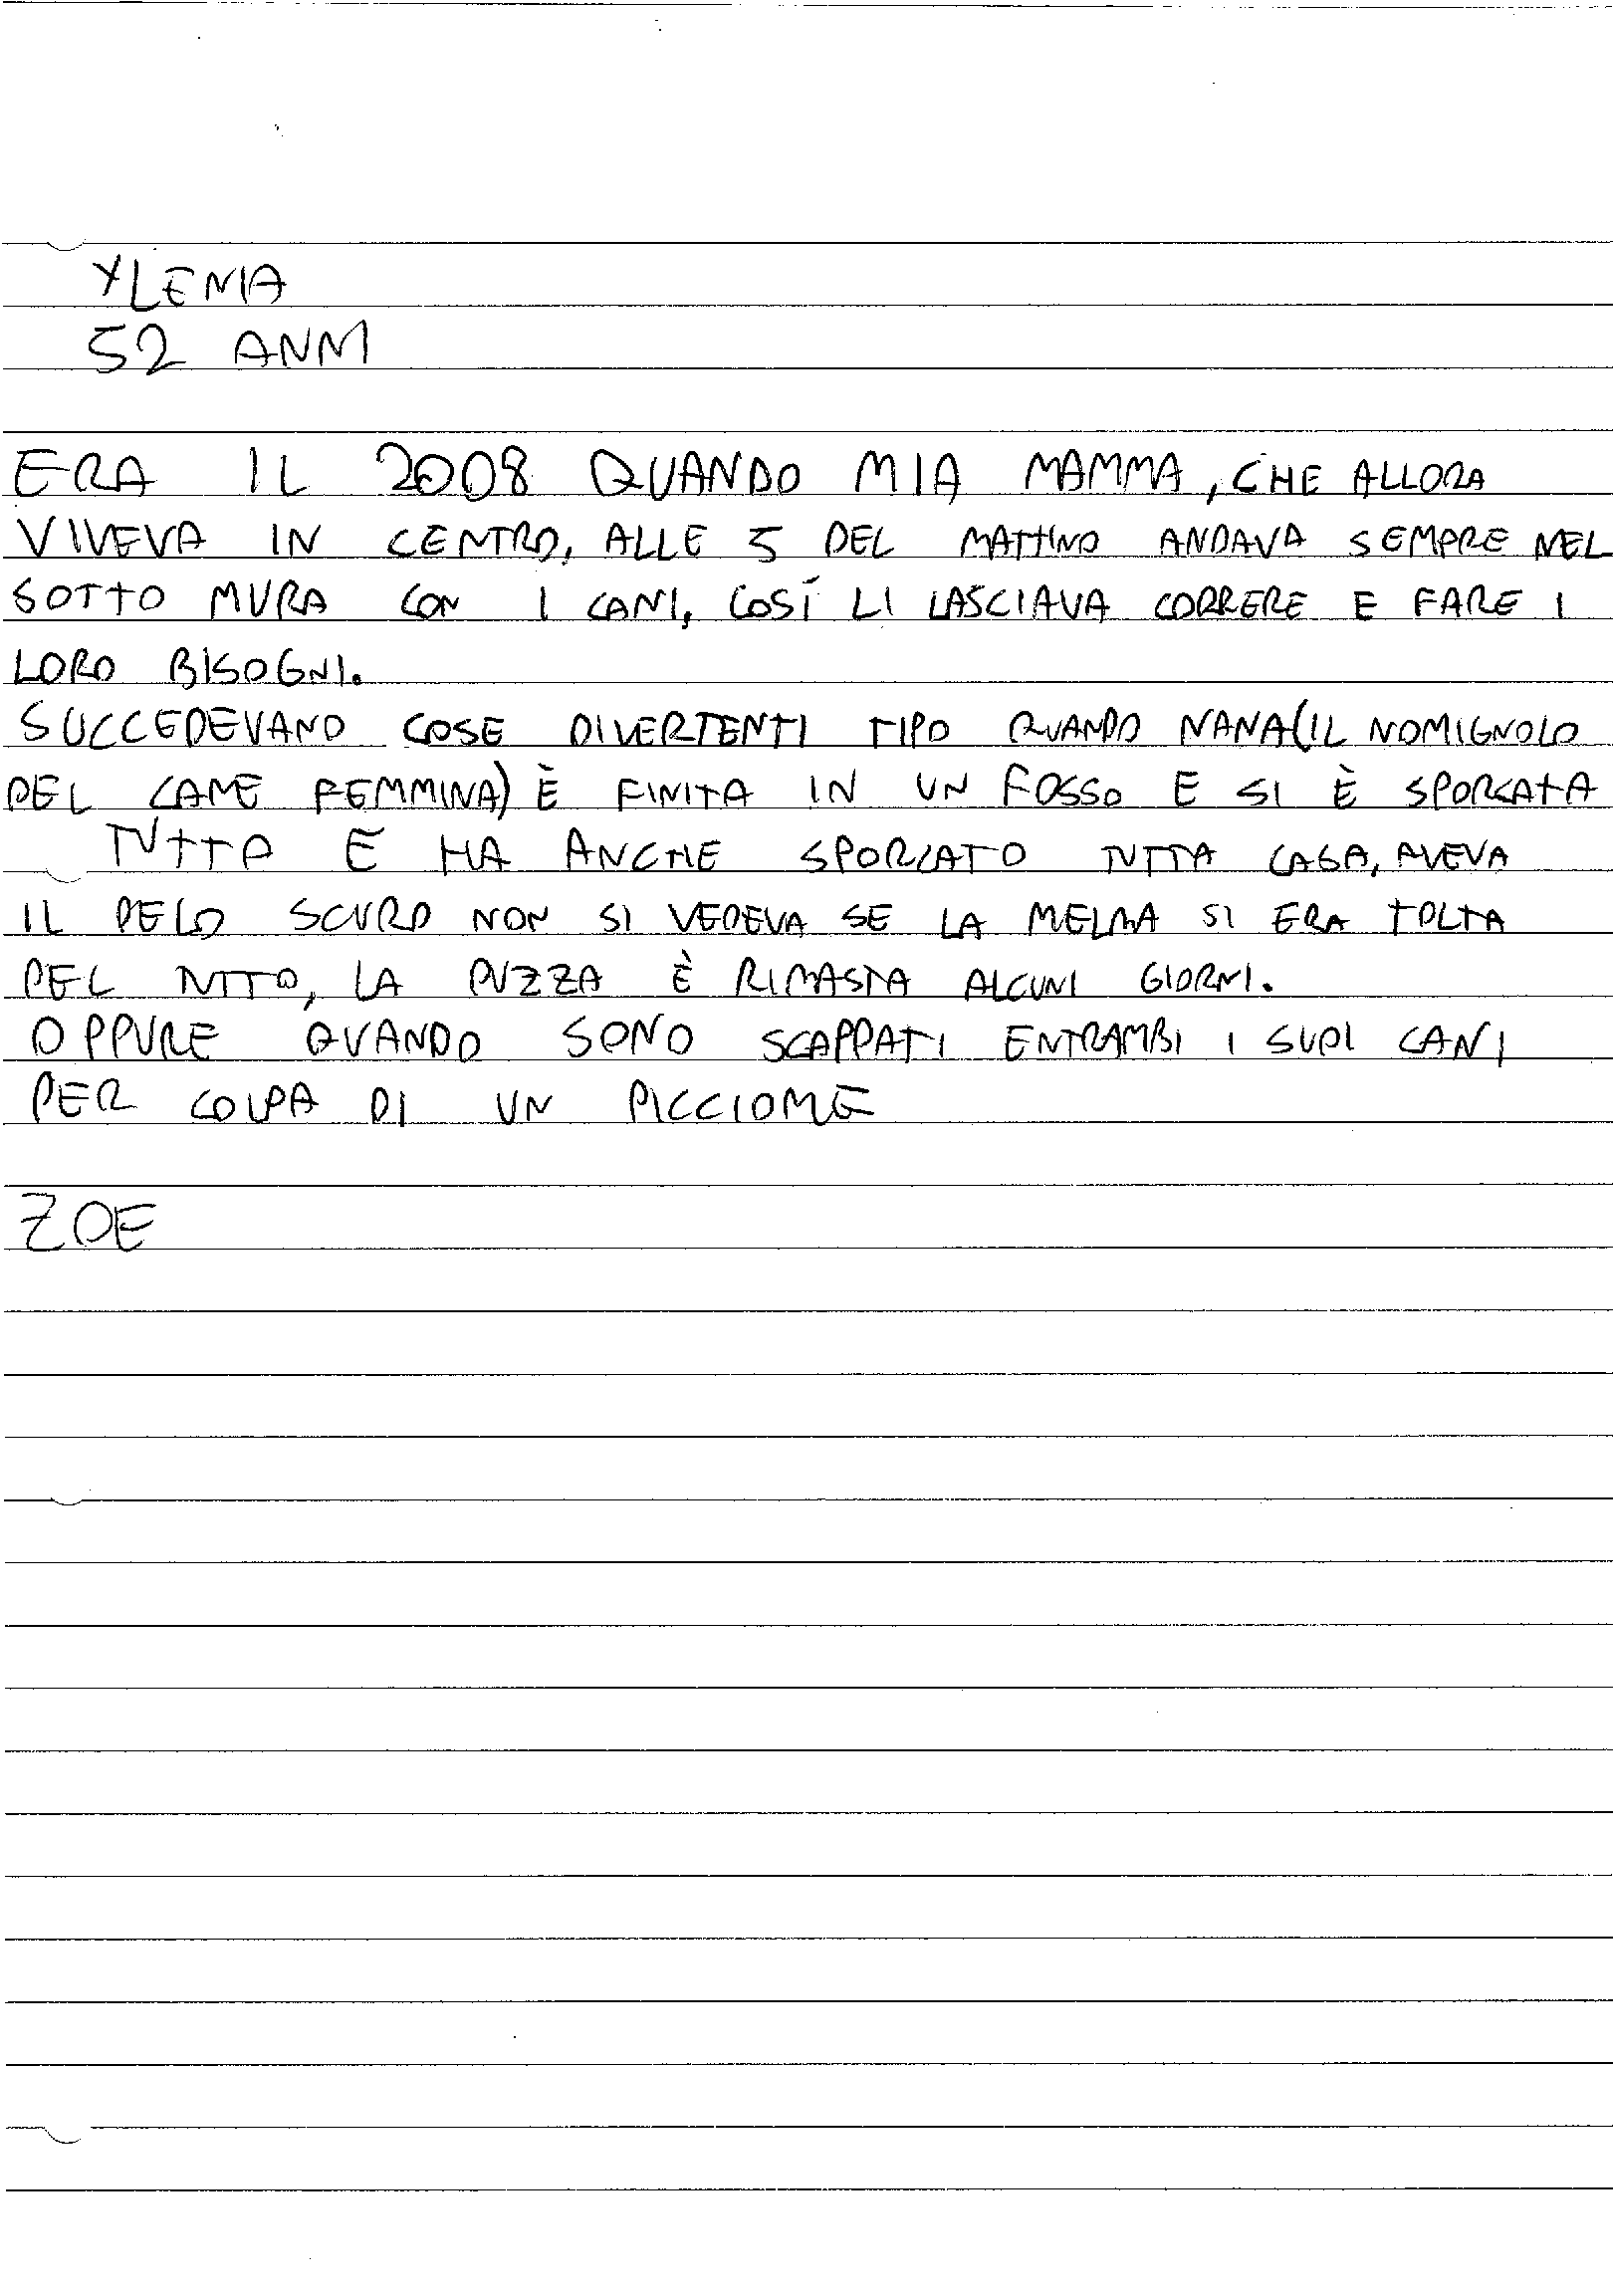 YLENIA
52 ANNI
ERA IL 2008 QUANDO MIA MAMMA, CHE ALLORA
VIVEVA IN CENTRO, ALLE 5 DEL MATTINO ANDAVA SEMPRE NEL
SOTTO MURA CON I CANI, COSÍ LI LASCIAVA CORRERE E FARE I
LORO BISOGNI.
SUCCEDEVANO COSE DIVERTENTI TIPO QUANDO NANA(IL NOMIGNOLO
DEL CANE FEMMINA) È FINITA IN UN FOSSO E SI È SPORCATA
TUTTA E HA ANCHE SPORCATO TUTTA CASA, AVEVA
IL PELO SCURO NON SI VEDEVA SE LA MELMA SI ERA TOLTA
DEL TUTTO, LA PUZZA È RIMASTA ALCUNI GIORNI.
OPPURE QUANDO SONO SCAPPATI ENTRAMBI I SUOI CANI
PER COLPA DI UN PICCIONE
ZOE